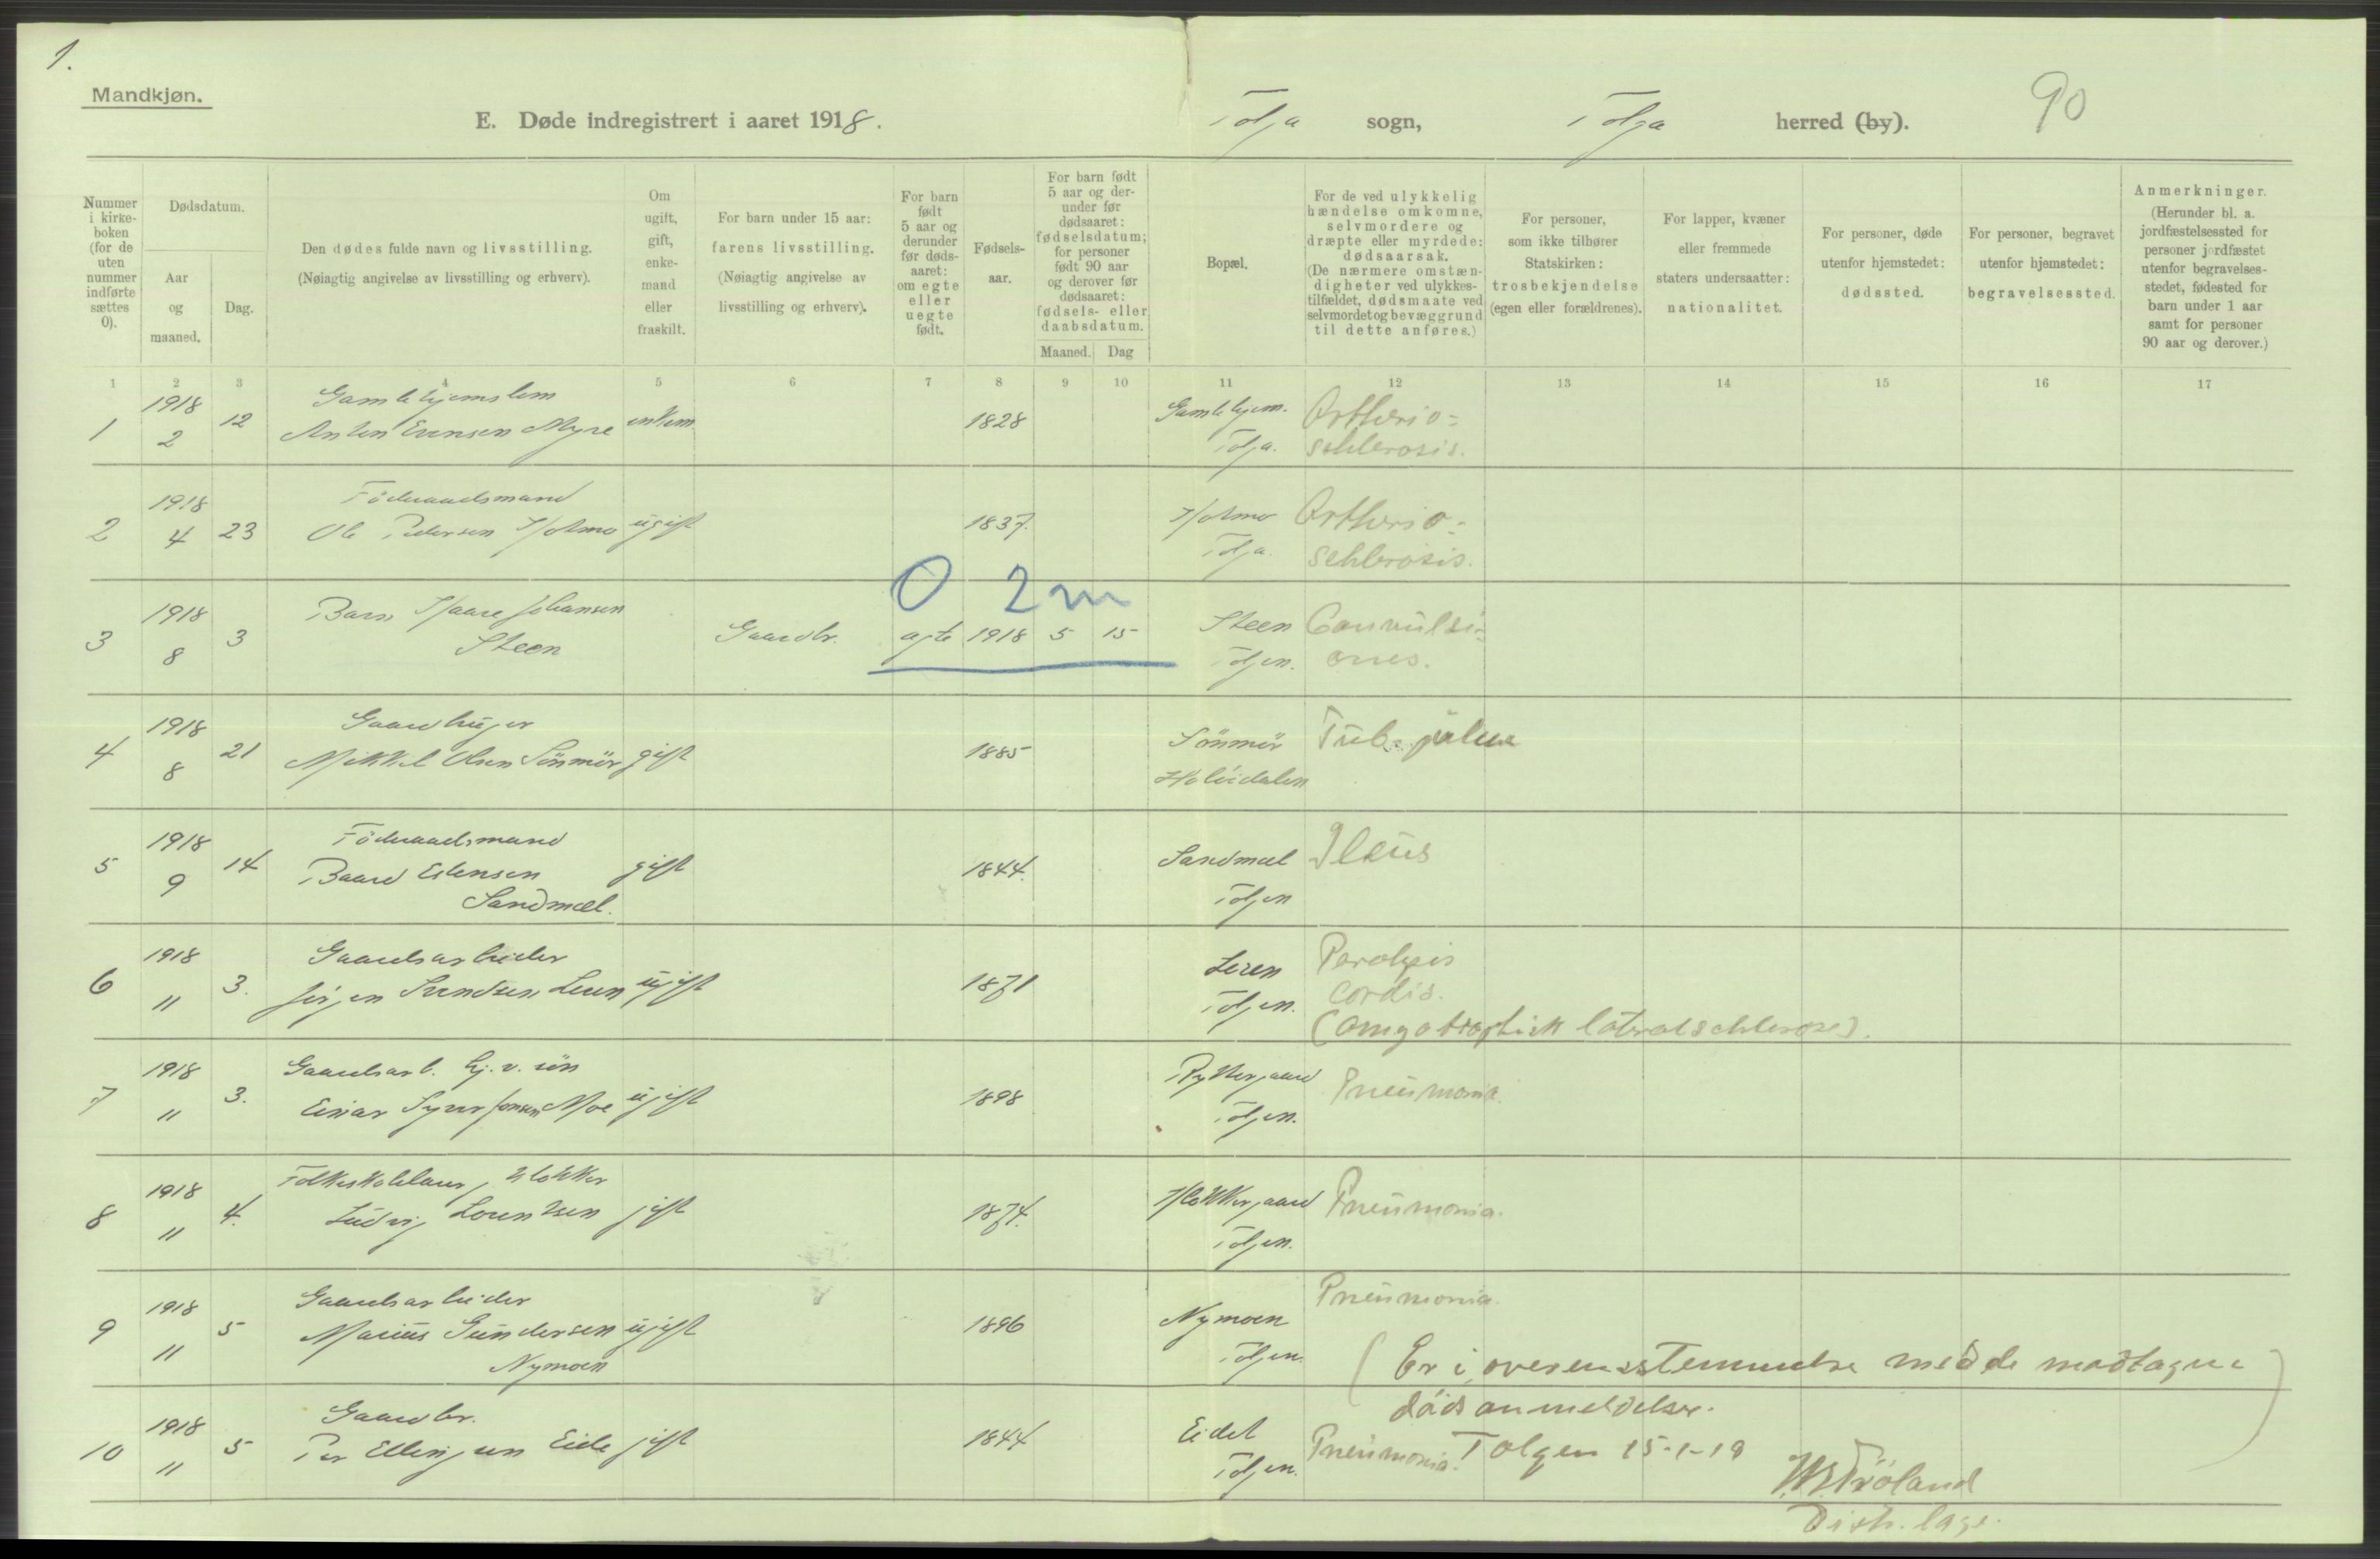 1.
Mandkjøn.
E. Døde indregistrert i aaret 1918.
Tolga sogn, Tolga herred (by).
90
Nummer i kirke-boken (for de uten nummer indførte sættes 0).
Dødsdatum.
Aar og maaned.
Dag.
Den dødes fulde navn og livsstilling.
(Nøiagtig angivelse av livsstilling og erhverv).
Om ugift, gift, enke-mand eller fraskilt.
For barn under 15 aar:
farens livsstilling.
(Nøiagtig angivelse av livsstilling og erhverv).
For barn født 5 aar og derunder før døds-aaret: om egte eller uegte født.
Fødsels-aar.
For barn født 5 aar og der-under før dødsaaret: fødselsdatum; for personer født 90 aar og derover før dødsaaret: fødsels- eller daabsdatum.
Maaned. Dag
Bopæl.
For de ved ulykkelig hændelse omkomne, selvmordere og dræpte eller myrdede: dødsaarsak.
(De nærmere omstæn-digheter ved ulykkes-tilfældet, dødsmaate ved selvmordet og bevæggrund til dette anføres.)
For personer, som ikke tilhører Statskirken: trosbekjendelse (egen eller forældrenes).
For lapper, kvæner eller fremmede staters undersaatter: nationalitet.
For personer, døde utenfor hjemstedet: dødssted.
For personer, begravet utenfor hjemstedet: begravelsessted.
Anmerkninger.
(Herunder bl. a. jordfæstelsessted for personer jordfæstet utenfor begravelses-stedet, fødested for barn under 1 aar samt for personer 90 aar og derover.)
1 2 3 4 5 6 7 8 9 10 11 12 13 14 15 16 17
1918 Gamlehjemslem Gamlehjem. Artherio=
1 2 12 Anton Evensen Myre enkem 1828 Tolga. schlerosis.
1918 Föderaadsmand
2 4 23 Ole Pedersen Holmo ugift 1837. Holmo Artherio=
Tolga. schlerosis.
0 2 m
1918 Barn Haare Johansen
3 8 3 Steen Gaardbr. ægte 1918 5 15 Steen Convulsi=
Tolgen. ones.
1918 Gaardbruger
4 8 21 Mikkel Olsen Sönmör gift 1885 Sönmör Tub. pulm
Holöidalen
1918 Föderaadsmand
5 9 14 Baard Estensen gift 1844. Sandmæl Ileus
Sandmæl. Tolgen
1918 Gaardsarbeider
6 11 3. Jörgen Svendsen Leren ugift 1871 Leren Paralysis
Tolgen. cordis.
(amyotrophisk lateralschlerose).
1918 Gaardsarb. hj. v. sön
7 11 3. Einar Syver Jonsen Moe ugift 1898 Ryttergaard Pneumonia.
Tolgen.
1918 Folkeskolelærer, klokker
8 11 4. Ludvig Lorentsen gift 1874. Klokkergaard Pneumonia.
Tolgen.
1918 Gaardsarbeider Pneumonia.
9 11 5 Marius Gundersen ugift 1896 Nymoen
Nymoen Tolgen.
(Er i overensstemmelse med de modtagne
dödsanmeldelser.)
1918 Gaardbr.
10 11 5 Per Ellingsen Eide gift 1844 Eidet Pneumonia.
Tolgen.
Tolgen 15-1-19
Distr. læge.